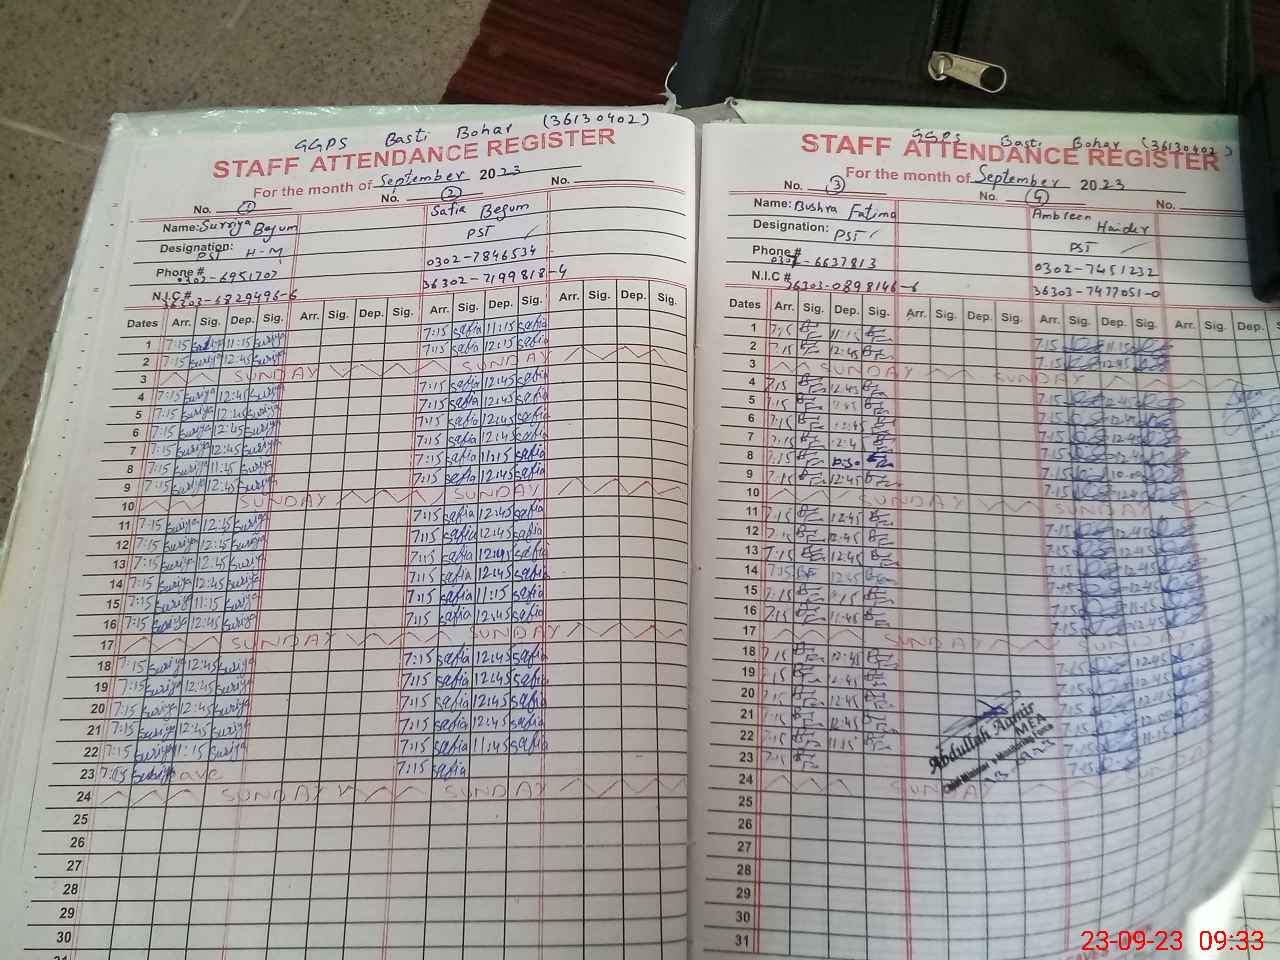 GGPS Basti Bohar (36130402)
STAFF ATTENDANCE REGISTER
For the month of September 2023
No. 1 No. 2 No.
Name: Surriya Begum Safia Begum
Designation: PST H-M PST
Phone # 0302-6951702 0302-7846534
N.I.C# 36303-6829496-6 36302-7199818-4
Dates Arr. Sig. Dep. Sig. Arr. Sig. Dep. Sig. Arr. Sig. Dep. Sig. Arr. Sig. Dep. Sig.
1 7:15 suriya 11:15 suriya 7:15 safia 11:15 safia
2 7:15 suriya 12:45 suriya 7:15 safia 12:15 safia
3 SUNDAY SUNDAY
4 7:15 suriya 12:45 suriya 7:15 safia 12:45 safia
5 7:15 suriya 12:45 suriya 7:15 safia 12:45 safia
6 7:15 suriya 12:45 suriya 7:15 safia 12:45 safia
7 7:15 suriya 12:45 suriya 7:15 safia 12:45 safia
8 7:15 suriya 11:15 suriya 7:15 safia 11:15 safia
9 7:15 suriya 12:45 suriya 7:15 safia 12:45 safia
10 SUNDAY SUNDAY
11 7:15 suriya 12:45 suriya 7:15 safia 12:45 safia
12 7:15 suriya 12:45 suriya 7:15 safia 12:45 safia
13 7:15 suriya 12:45 suriya 7:15 safia 12:45 safia
14 7:15 suriya 12:45 suriya 7:15 safia 12:45 safia
15 7:15 suriya 11:15 suriya 7:15 safia 11:15 safia
16 7:15 suriya 12:45 suriya 7:15 safia 12:45 safia
17 SUNDAY SUNDAY
18 7:15 suriya 12:45 suriya 7:15 safia 12:45 safia
19 7:15 suriya 12:45 suriya 7:15 safia 12:45 safia
20 7:15 suriya 12:45 suriya 7:15 safia 12:45 safia
21 7:15 suriya 12:45 suriya 7:15 safia 12:45 safia
22 7:15 suriya 11:15 suriya 7:15 safia 11:45 safia
23 7:15 suriya 7:15 safia
24 SUNDAY SUNDAY
25
26
27
28
29
30
31
GGPS Basti Bohar (36130402)
STAFF ATTENDANCE REGISTER
For the month of September 2023
No. 3 No. 4 No.
Name: Bushra Fatima Ambreen Haider
Designation: PST PST
Phone # 6637813 0302-7451232
N.I.C# 36303-0898146-6 36303-7477051-0
Dates Arr. Sig. Dep. Sig. Arr. Sig. Dep. Sig. Arr. Sig. Dep. Sig. Arr. Sig. Dep.
1 7:15 11:15 7:15 11:15
2 7:15 12:45 7:15 12:45
3 SUNDAY SUNDAY
4 7:15 12:45 7:15 12:45
5 7:15 7:15
6 7:15 12:45 7:15 12:45
7 7:15 7:15
8 7:15 7:15
9 7:15 12:45 7:15
10 SUNDAY SUNDAY
11 7:15 12:45 7:15 12:45
12 7:15 12:45 7:15 12:45
13 7:15 12:45 7:15 12:45
14 7:15 12:45 7:15 12:45
15 7:15 7:15 11:15
16 7:15 11:45 7:15 12:45
17 SUNDAY SUNDAY
18 7:15 12:45 7:15 12:45
19 7:15 12:45 7:15 12:45
20 7:15 12:45 7:15
21 7:15 12:45 7:15
22 7:15 11:15 7:15 11:15
23 7:15 7:15
24 SUNDAY
25
26
27
28
29
30
31
Abdullah Aamir
MEA
23-09-23 09:33